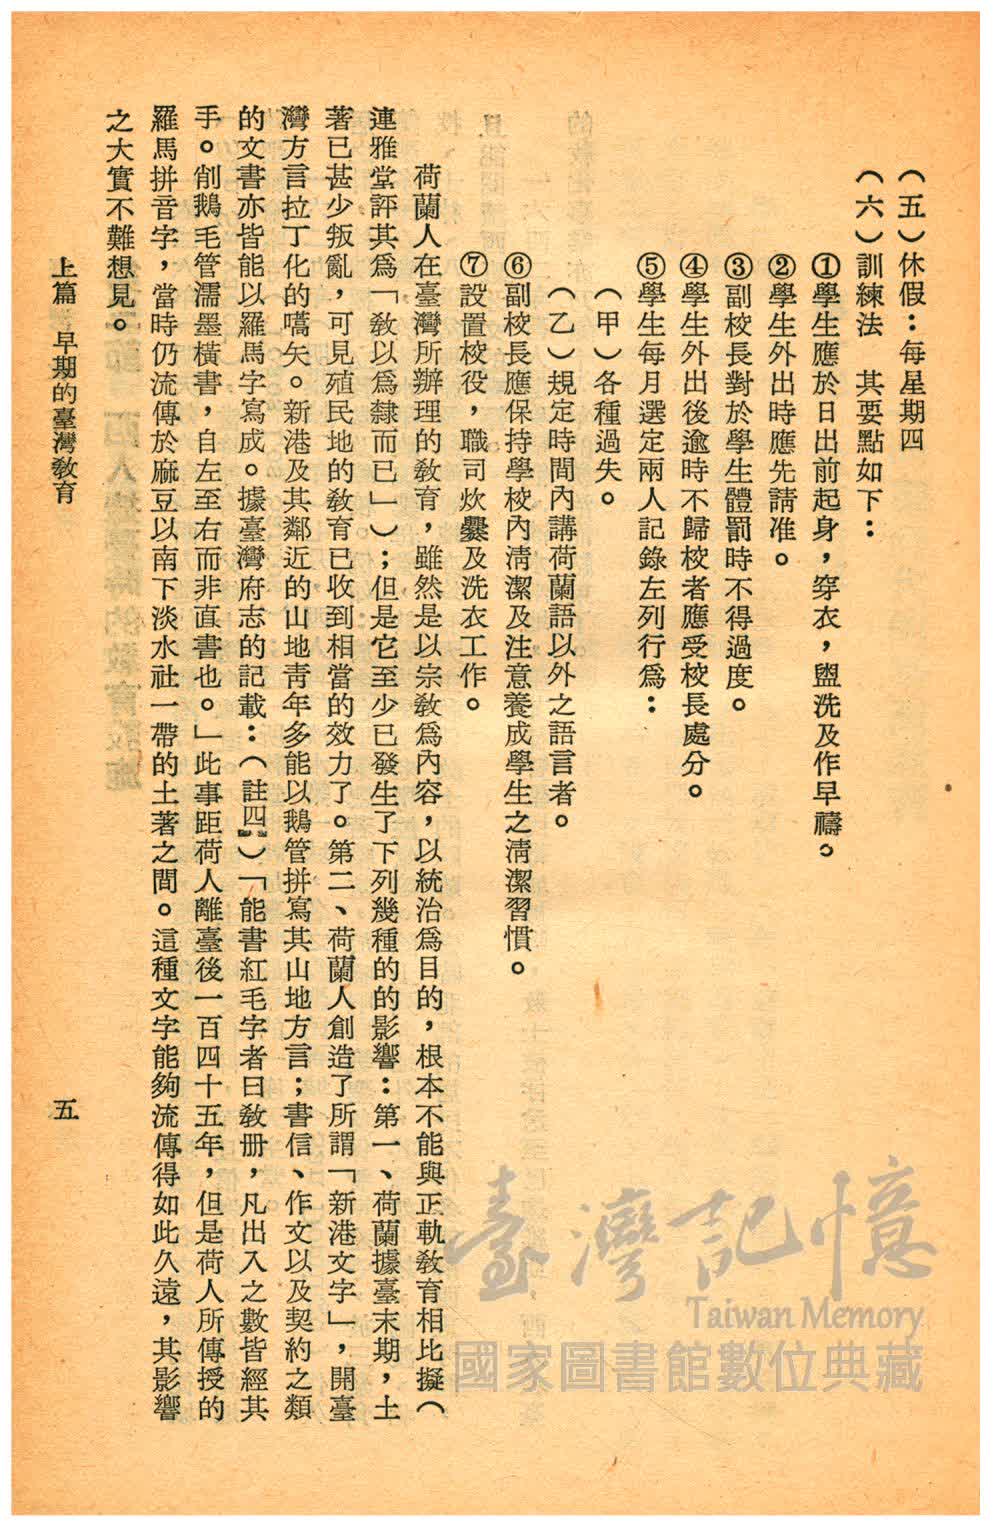 （五）休假：每星期四
（六）訓練法　其要點如下：
①學生應於日出前起身，穿衣，盥洗及作早禱。
②學生外出時應先請准。
③副校長對於學生體罰時不得過度。
④學生外出後逾時不歸校者應受校長處分。
⑤學生每月選定兩人記錄左列行爲：
（甲）各種過失。
（乙）規定時間內講荷蘭語以外之語言者。
⑥副校長應保持學校內淸潔及注意養成學生之淸潔習慣。
⑦設置校役，職司炊爨及洗衣工作。
荷蘭人在臺灣所辦理的敎育，雖然是以宗敎爲內容，以統治爲目的，根本不能與正軌敎育相比擬（
連雅堂評其爲「敎以爲隸而已」）；但是它至少已發生了下列幾種的的影響：第一、荷蘭據臺末期，土
著已甚少叛亂，可見殖民地的敎育已收到相當的效力了。第二、荷蘭人創造了所謂「新港文字」，開臺
灣方言拉丁化的嚆矢。新港及其鄰近的山地靑年多能以鵝管拼寫其山地方言；書信、作文以及契約之類
的文書亦皆能以羅馬字寫成。據臺灣府志的記載：（註四）「能書紅毛字者曰敎册，凡出入之數皆經其
手。削鵝毛管濡墨橫書，自左至右而非直書也。」此事距荷人離臺後一百四十五年，但是荷人所傳授的
羅馬拼音字，當時仍流傳於麻豆以南下淡水社一帶的土著之間。這種文字能夠流傳得如此久遠，其影響
之大實不難想見。
上篇　早期的臺灣敎育
五
臺灣記憶
Taiwan Memory
國家圖書館數位典藏